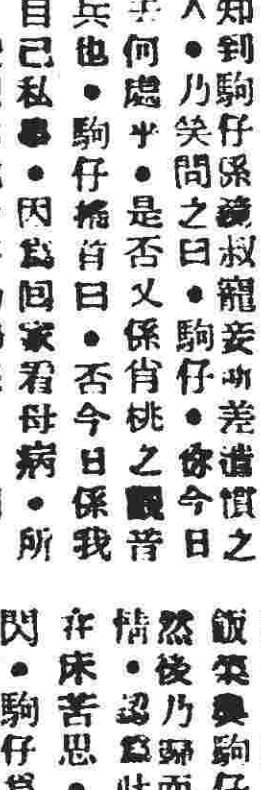 知到駒仔係叔寵妾所差遣慣之
人•乃笑問之曰•駒仔•你今日
于何處乎•是否又係肖桃之音
兵也•駒仔搖首曰•否今日係我
自己私事•因爲回家看母病•所
飯與駒仔
然後乃而
情•認爲
在床苦思•
閃•駒仔